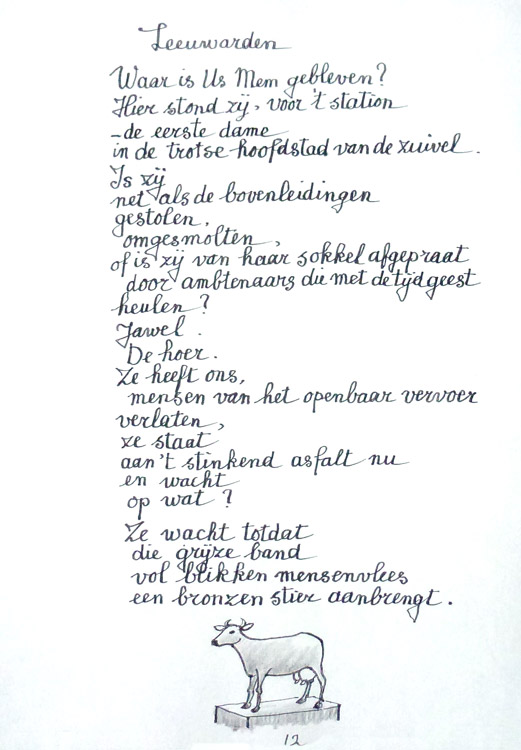 Leeuwarden
Waar is Us Mem gebleven?
Hier stond zij, voor 't station
-de eerste dame
in de trotse hoofdstad van de zuivel.
Is zij
net als de bovenleidingen
gestolen,
omgesmolten,
of is zij van haar sokkel afgepraat
door ambtenaars die met de tijdgeest
heulen?
Jawel.
De hoer.
Ze heeft ons,
mensen van het openbaar vervoer
verlaten,
ze staat
aan 't stinkend asfalt nu
en wacht
op wat?
Ze wacht totdat
die grijze band
vol blikken mensenvlees
een bronzen stier aanbrengt.
12